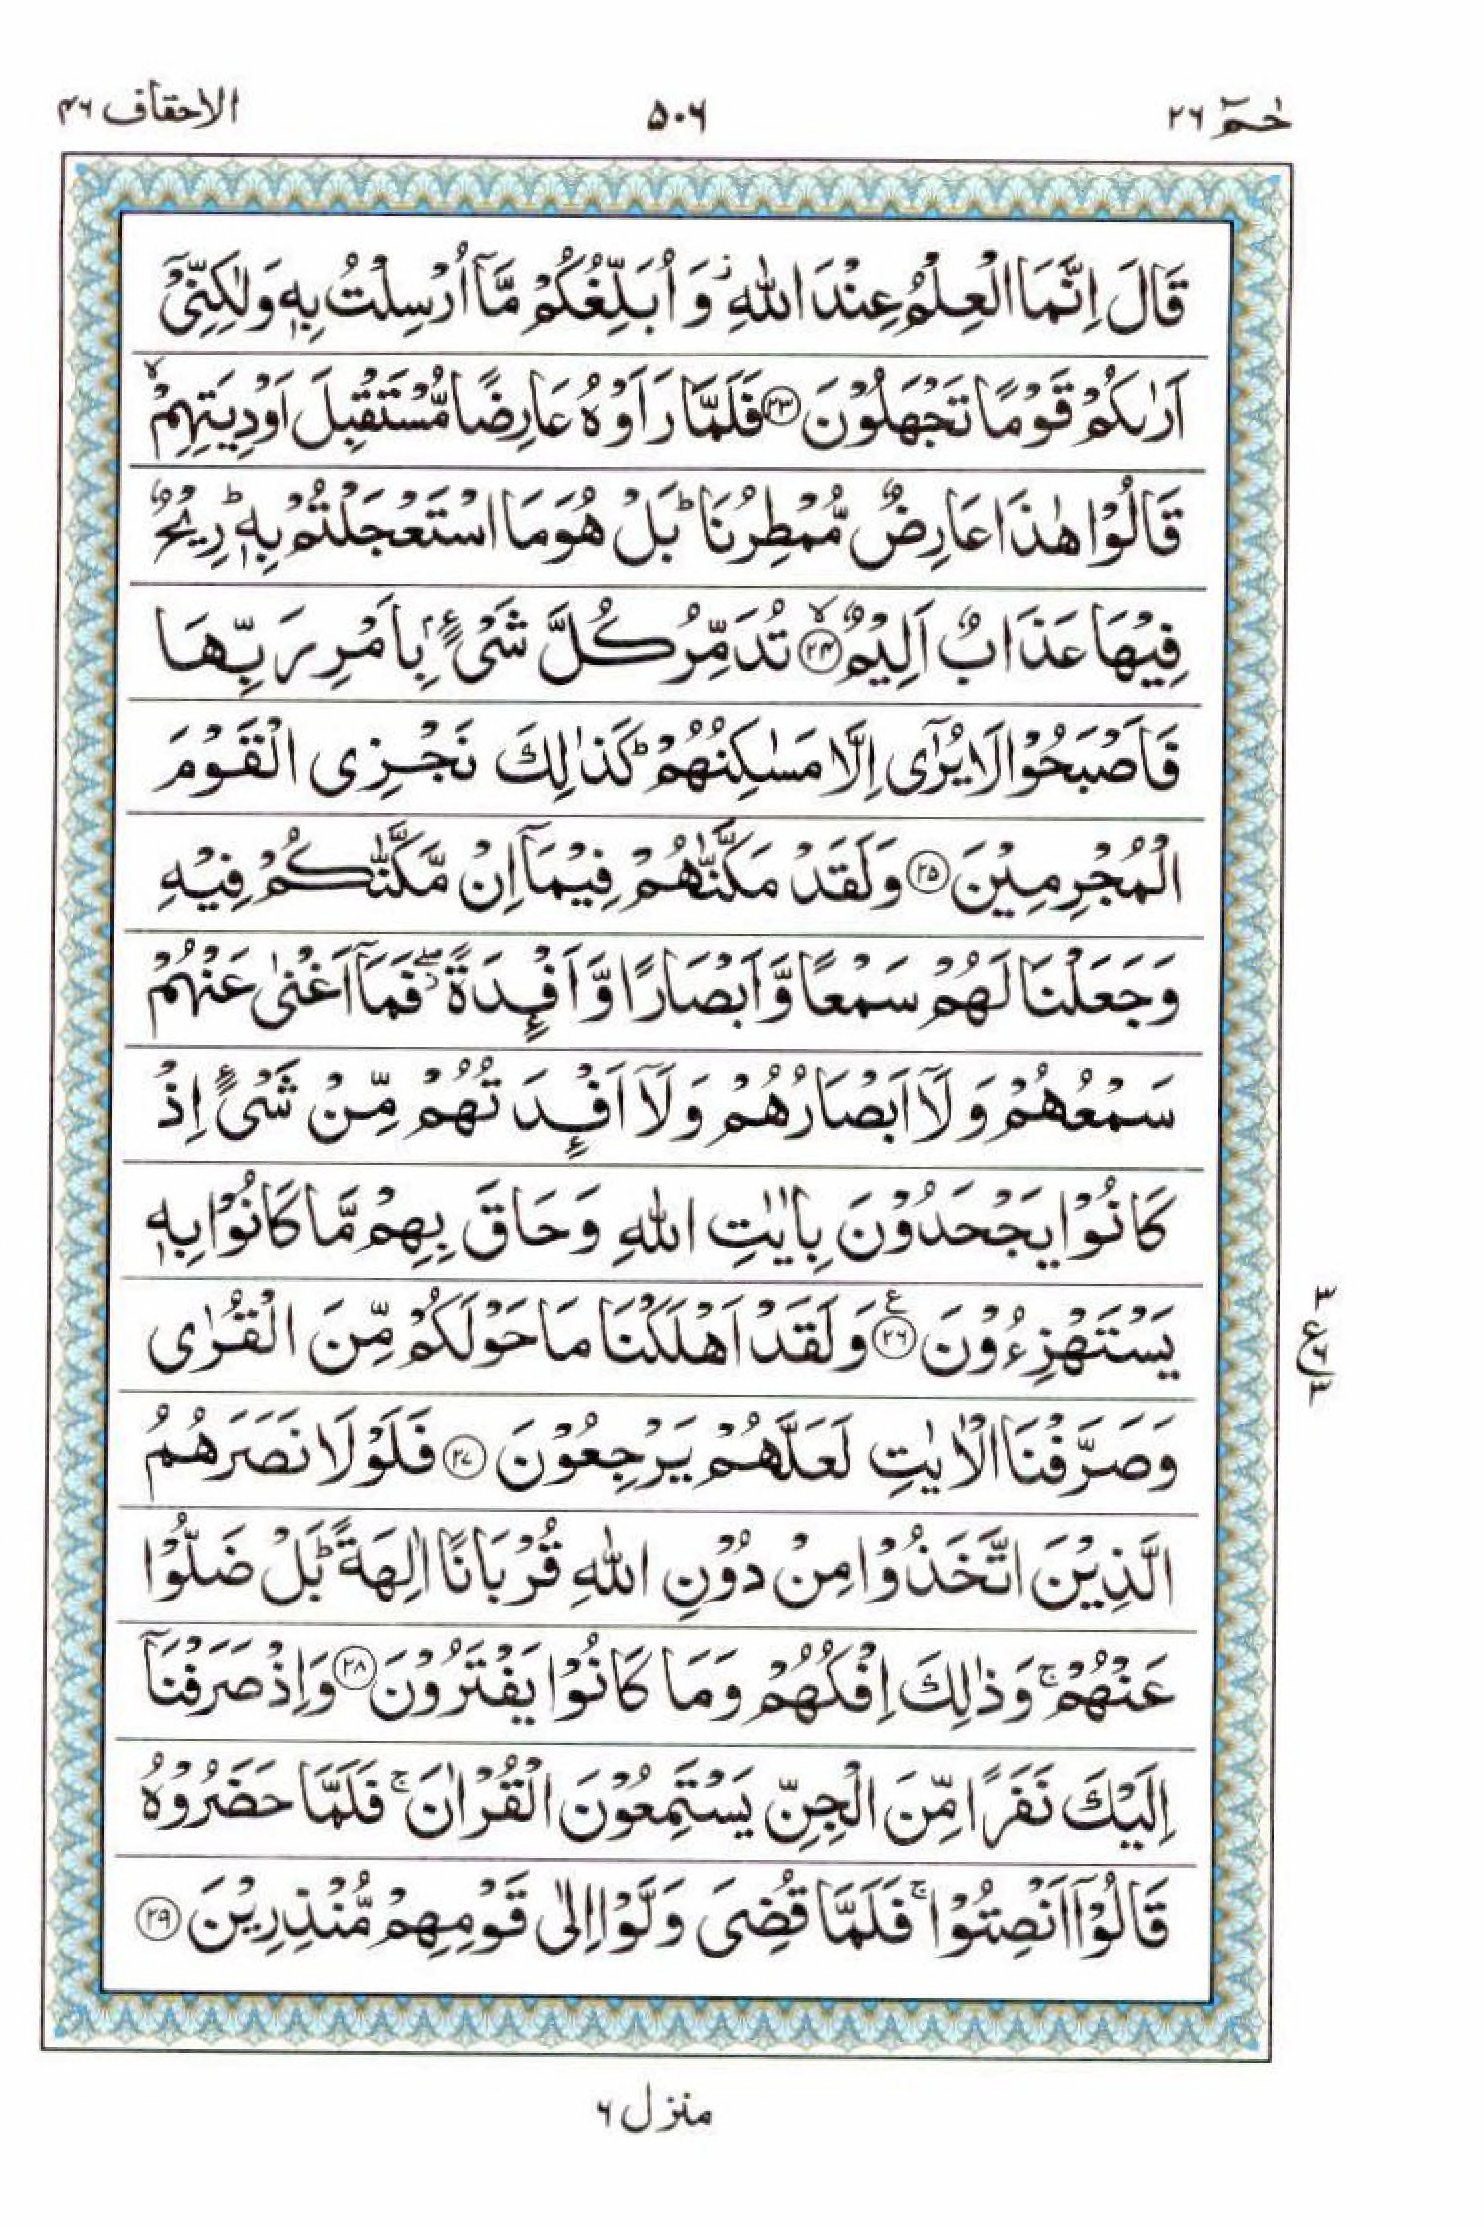 حٰمٓ ٢٦ ٥٠٦ الاحقاف ٤٦
قَالَ اِنَّمَا الْعِلْمُ عِنْدَ اللّٰهِ ۖ وَ اُبَلِّغُكُمْ مَّاۤ اُرْسِلْتُ بِهٖ وَلٰكِنِّیْۤ
اَرٰىكُمْ قَوْمًا تَجْهَلُوْنَ ﴿٢٣﴾ فَلَمَّا رَاَوْهُ عَارِضًا مُّسْتَقْبِلَ اَوْدِیَتِهِمْ ۙ
قَالُوْا هٰذَا عَارِضٌ مُّمْطِرُنَا ؕ بَلْ هُوَ مَا اسْتَعْجَلْتُمْ بِهٖ ؕ رِیْحٌ
فِیْهَا عَذَابٌ اَلِیْمٌ ﴿٢٤﴾ ۙ تُدَمِّرُ كُلَّ شَیْءٍۭ بِاَمْرِ رَبِّهَا
فَاَصْبَحُوْا لَا یُرٰۤی اِلَّا مَسٰكِنُهُمْ ؕ كَذٰلِكَ نَجْزِی الْقَوْمَ
الْمُجْرِمِیْنَ ﴿٢٥﴾ وَلَقَدْ مَكَّنّٰهُمْ فِیْمَاۤ اِنْ مَّكَّنّٰكُمْ فِیْهِ
وَجَعَلْنَا لَهُمْ سَمْعًا وَّاَبْصَارًا وَّاَفْـِٕدَةً ۖ فَمَاۤ اَغْنٰی عَنْهُمْ
سَمْعُهُمْ وَلَاۤ اَبْصَارُهُمْ وَلَاۤ اَفْـِٕدَتُهُمْ مِّنْ شَیْءٍ اِذْ
كَانُوْا یَجْحَدُوْنَ بِاٰیٰتِ اللّٰهِ وَحَاقَ بِهِمْ مَّا كَانُوْا بِهٖ
یَسْتَهْزِءُوْنَ ﴿٢٦﴾ ع وَلَقَدْ اَهْلَكْنَا مَا حَوْلَكُمْ مِّنَ الْقُرٰی
٣ ع ٦ ٣
وَصَرَّفْنَا الْاٰیٰتِ لَعَلَّهُمْ یَرْجِعُوْنَ ﴿٢٧﴾ فَلَوْلَا نَصَرَهُمُ
الَّذِیْنَ اتَّخَذُوْا مِنْ دُوْنِ اللّٰهِ قُرْبَانًا اٰلِهَةً ؕ بَلْ ضَلُّوْا
عَنْهُمْ ۚ وَذٰلِكَ اِفْكُهُمْ وَمَا كَانُوْا یَفْتَرُوْنَ ﴿٢٨﴾ وَاِذْ صَرَفْنَاۤ
اِلَیْكَ نَفَرًا مِّنَ الْجِنِّ یَسْتَمِعُوْنَ الْقُرْاٰنَ ۚ فَلَمَّا حَضَرُوْهُ
قَالُوْۤا اَنْصِتُوْا ۚ فَلَمَّا قُضِیَ وَلَّوْا اِلٰی قَوْمِهِمْ مُّنْذِرِیْنَ ﴿٢٩﴾
منزل ٦